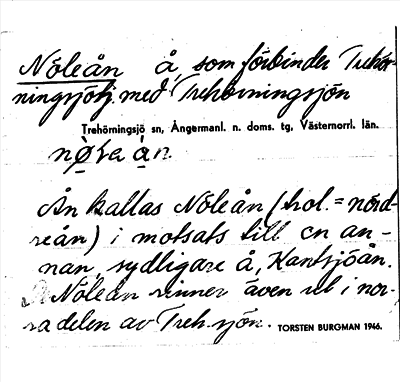 Nöleån å, som förbinder Trehör-
ningsjötj. med Trehörningsjön
Trehörningsjö sn, Ångermanl. n. doms. tg, Västernorrl. län.
Ån kallas Nöleån (trol. = nörd-
reån) i motsats till en an-
nan, sydligare å, Kantsjöån.
Nöleån rinner även ut i nor-
ra delen av Treh.sjön. TORSTEN BURGMAN 1946.